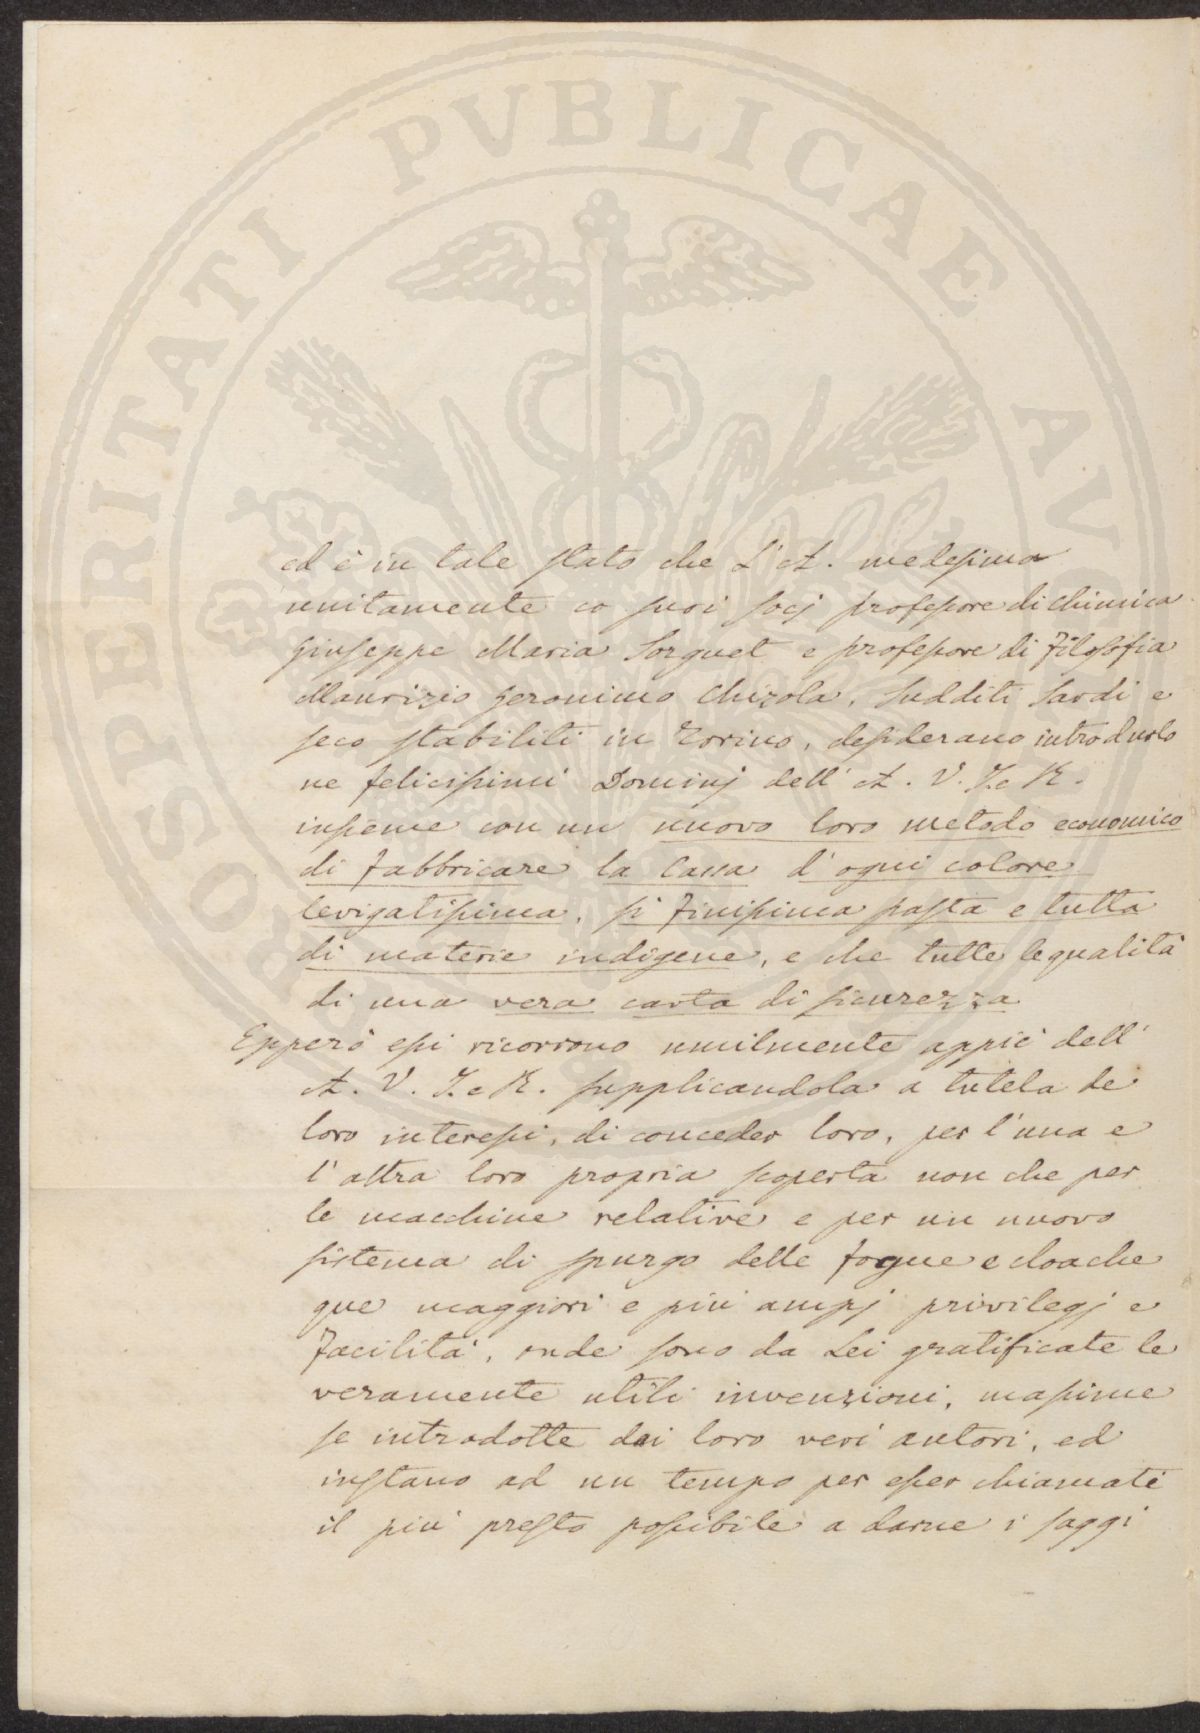 PROSPERITATI PVBLICAE AVGENDAE
ed è in tale stato che L'A. medesima
unitamente co suoi socj professore di chimica
Giuseppe Maria Sorquet e professore di Filosofia
Maurizio Geronimo Chizola, sudditi sardi e
seco stabiliti in Torino, desiderano introdurlo
ne felicissimi Dominj dell' A. V. I. e R.
insieme con un nuovo loro metodo economico
di fabbricare la Carta d' ogni colore
levigatissima, si finissima pasta e tutta
di materie indigene, e che tutte le qualità
di una vera carta di sicurezza
Epperò essi ricorrono umilmente appiè dell'
A. V. I. e R. supplicandola a tutela de
loro interessi, di conceder loro, per l'una e
l'altra loro propria scoperta non che per
le macchine relative e per un nuovo
sistema di spurgo delle fogne e cloache
que maggiori e più ampj privilegj e
facilità, onde sono da Lei gratificate le
veramente utili invenzioni, massime
se introdotte dai loro veri autori, ed
instano ad un tempo per esser chiamati
il più presto possibile a darne i saggi